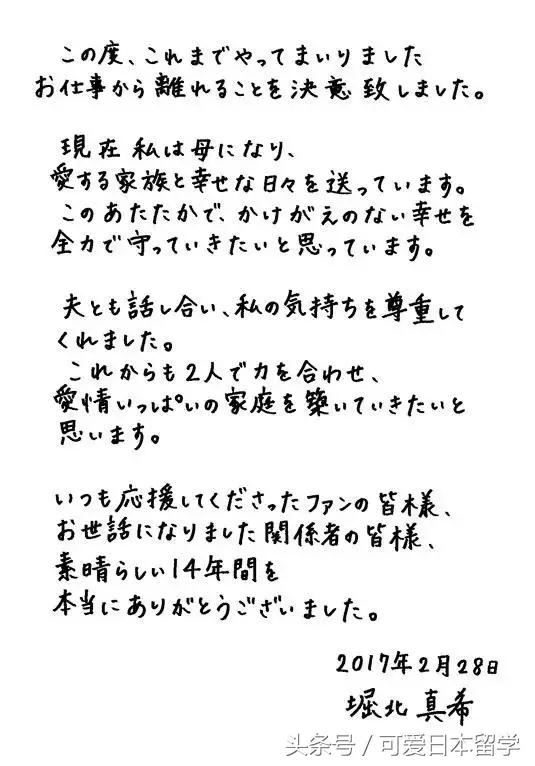 この度、これまでやってまいりました
お仕事から離れることを決意致しました。
現在私は母になり、
愛する家族と幸せな日々を送っています。
このあたたかで、かけがえのない幸せを
全力で守っていきたいと思っています。
夫とも話し合い、私の気持ちを尊重して
くれました。
これからも2人で力を合わせ、
愛情いっぱいの家庭を築いていきたいと
思います。
いつも応援してくださったファンの皆様、
お世話になりました関係者の皆様、
素晴らしい14年間を
本当にありがとうございました。
2017年2月28日
堀北真希
头条号 / 可爱日本留学